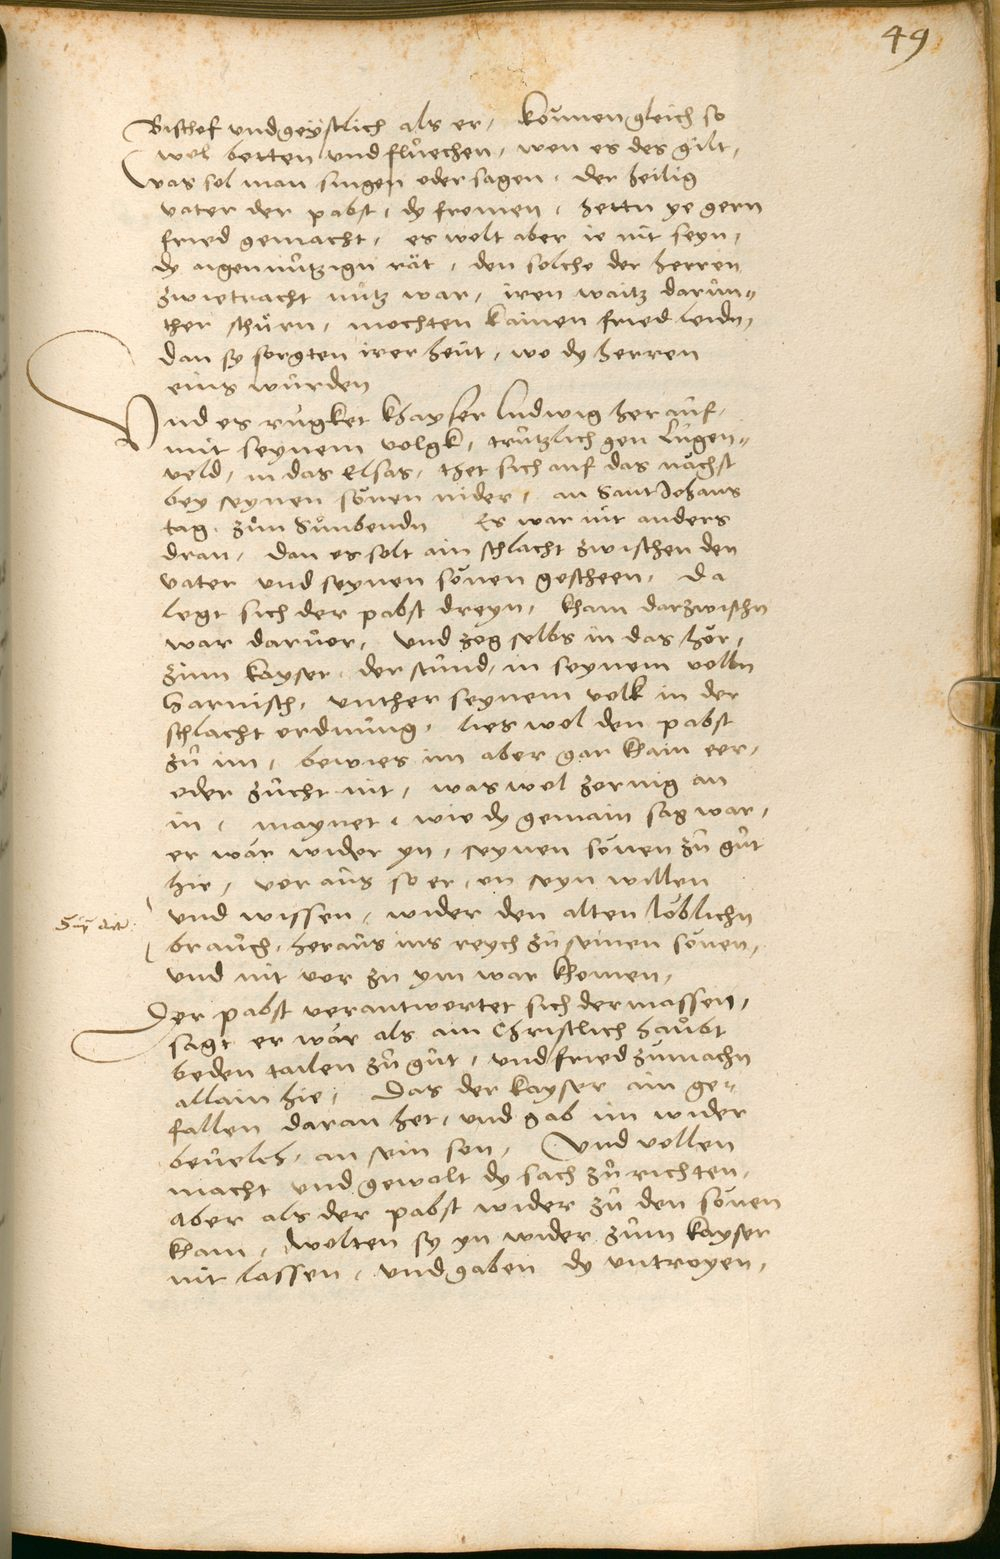 49
Bischof und geystlich als er, können gleich so
wol betten und fluechen, wen es des gilt,
Was sol man singen oder sagen. der heilig
vater der pabst, dy fromen, hettn ye gern
fried gemacht, es wolt aber ie nit seyn,
dy aigennutzign rät, den solche der herren
zwietracht nutz war, iren waitz darun=
ther schürn, mochten kainen fried leidn,
dan sy sorgten irer heut, wo dy herren
eins wurden
Und es rugket khayser Ludwig herauf,
mit seynem volgk, trutzlich gen Lugen=
veld, in das Elsas, thet sich auf das nächst
bey seynen sönen nider, an Sant Johans
tag. zun Sunbendn Es war nit anders
dran, dan es solt ain schlacht zwischen den
vater und seynen sönen gescheen, Da
legt sich der pabst dreyn, kham darzwischn
war darvor, und zog selbs in das hör,
zum kayser. der stund, in seynem volln
Harnisch, unther seynem volk in der
schlacht ordnung, lies wol den pabst
zu im, bewies im aber gar khain eer,
oder zucht nit, was wol zornig an
in, maynet, wie dy gemain sag war,
er wär wider yn, seynen sönen zu gut
hie, voraus so er, on seyn willen
und wissen, wider den alten löblichn
brauch, heraus ins reych zu seinen sönen,
und nit vor zu ym war khomen,
Der pabst verantwortet sich dermassen,
sagt er wär als ain Christlich haubt
beden tailen zu gut, und fried zumachn
allain hie, Das der kayser ain ge=
fallen daran het, und gab im wider
bevelch, an sein son, Und vollen
macht und gewalt dy sach zu richten,
Aber als der pabst wider zu den sönen
kham, wolten sy yn wider zum kayser
nit lassen, und gaben dy untreyen,